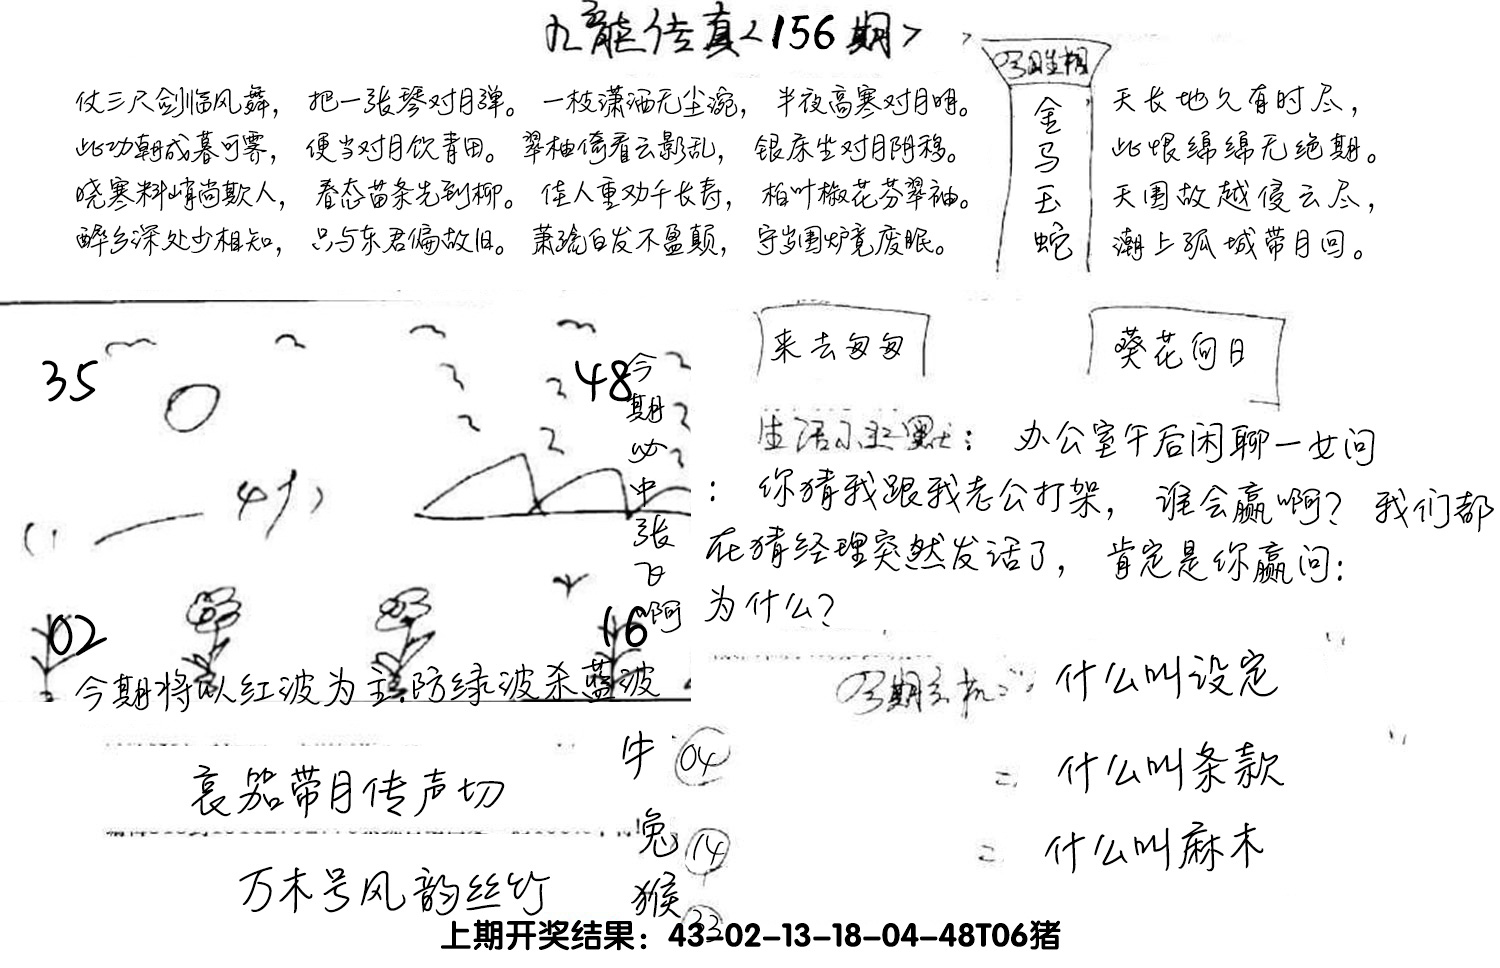 九龍传真<156期>
仗三尺剑临风舞，把一张琴对月弹。一枝潇洒无尘涴，半夜高寒对月明。
此功朝成暮可霁，便当对月饮青田。翠柚倚看云影乱，银床坐对月阴移。
晓寒料峭尚欺人，春态苗条先到柳。佳人重劝千长寿，柏叶椒花芬翠袖。
醉乡深处少相知，只与东君偏故旧。萧疏白发不盈颠，守岁围炉竟废眠。
金
马
玉
蛇
天长地久有时尽，
此恨绵绵无绝期。
天围故越侵云尽，
潮上孤城带月回。
35
48
今期必中张飞啊
4夕
02
16
今期将以红波为主防绿波杀蓝波
来去匆匆
葵花向日
生活幽默：办公室午后闲聊一女问
：你猜我跟我老公打架，谁会赢啊？我们都
在猜经理突然发话了，肯定是你赢问：
为什么？
什么叫设定
= 什么叫条款
= 什么叫麻木
哀笳带月传声切
万木号风韵丝竹
牛 04
兔 14
猴 33
上期开奖结果：43-02-13-18-04-48T06猪